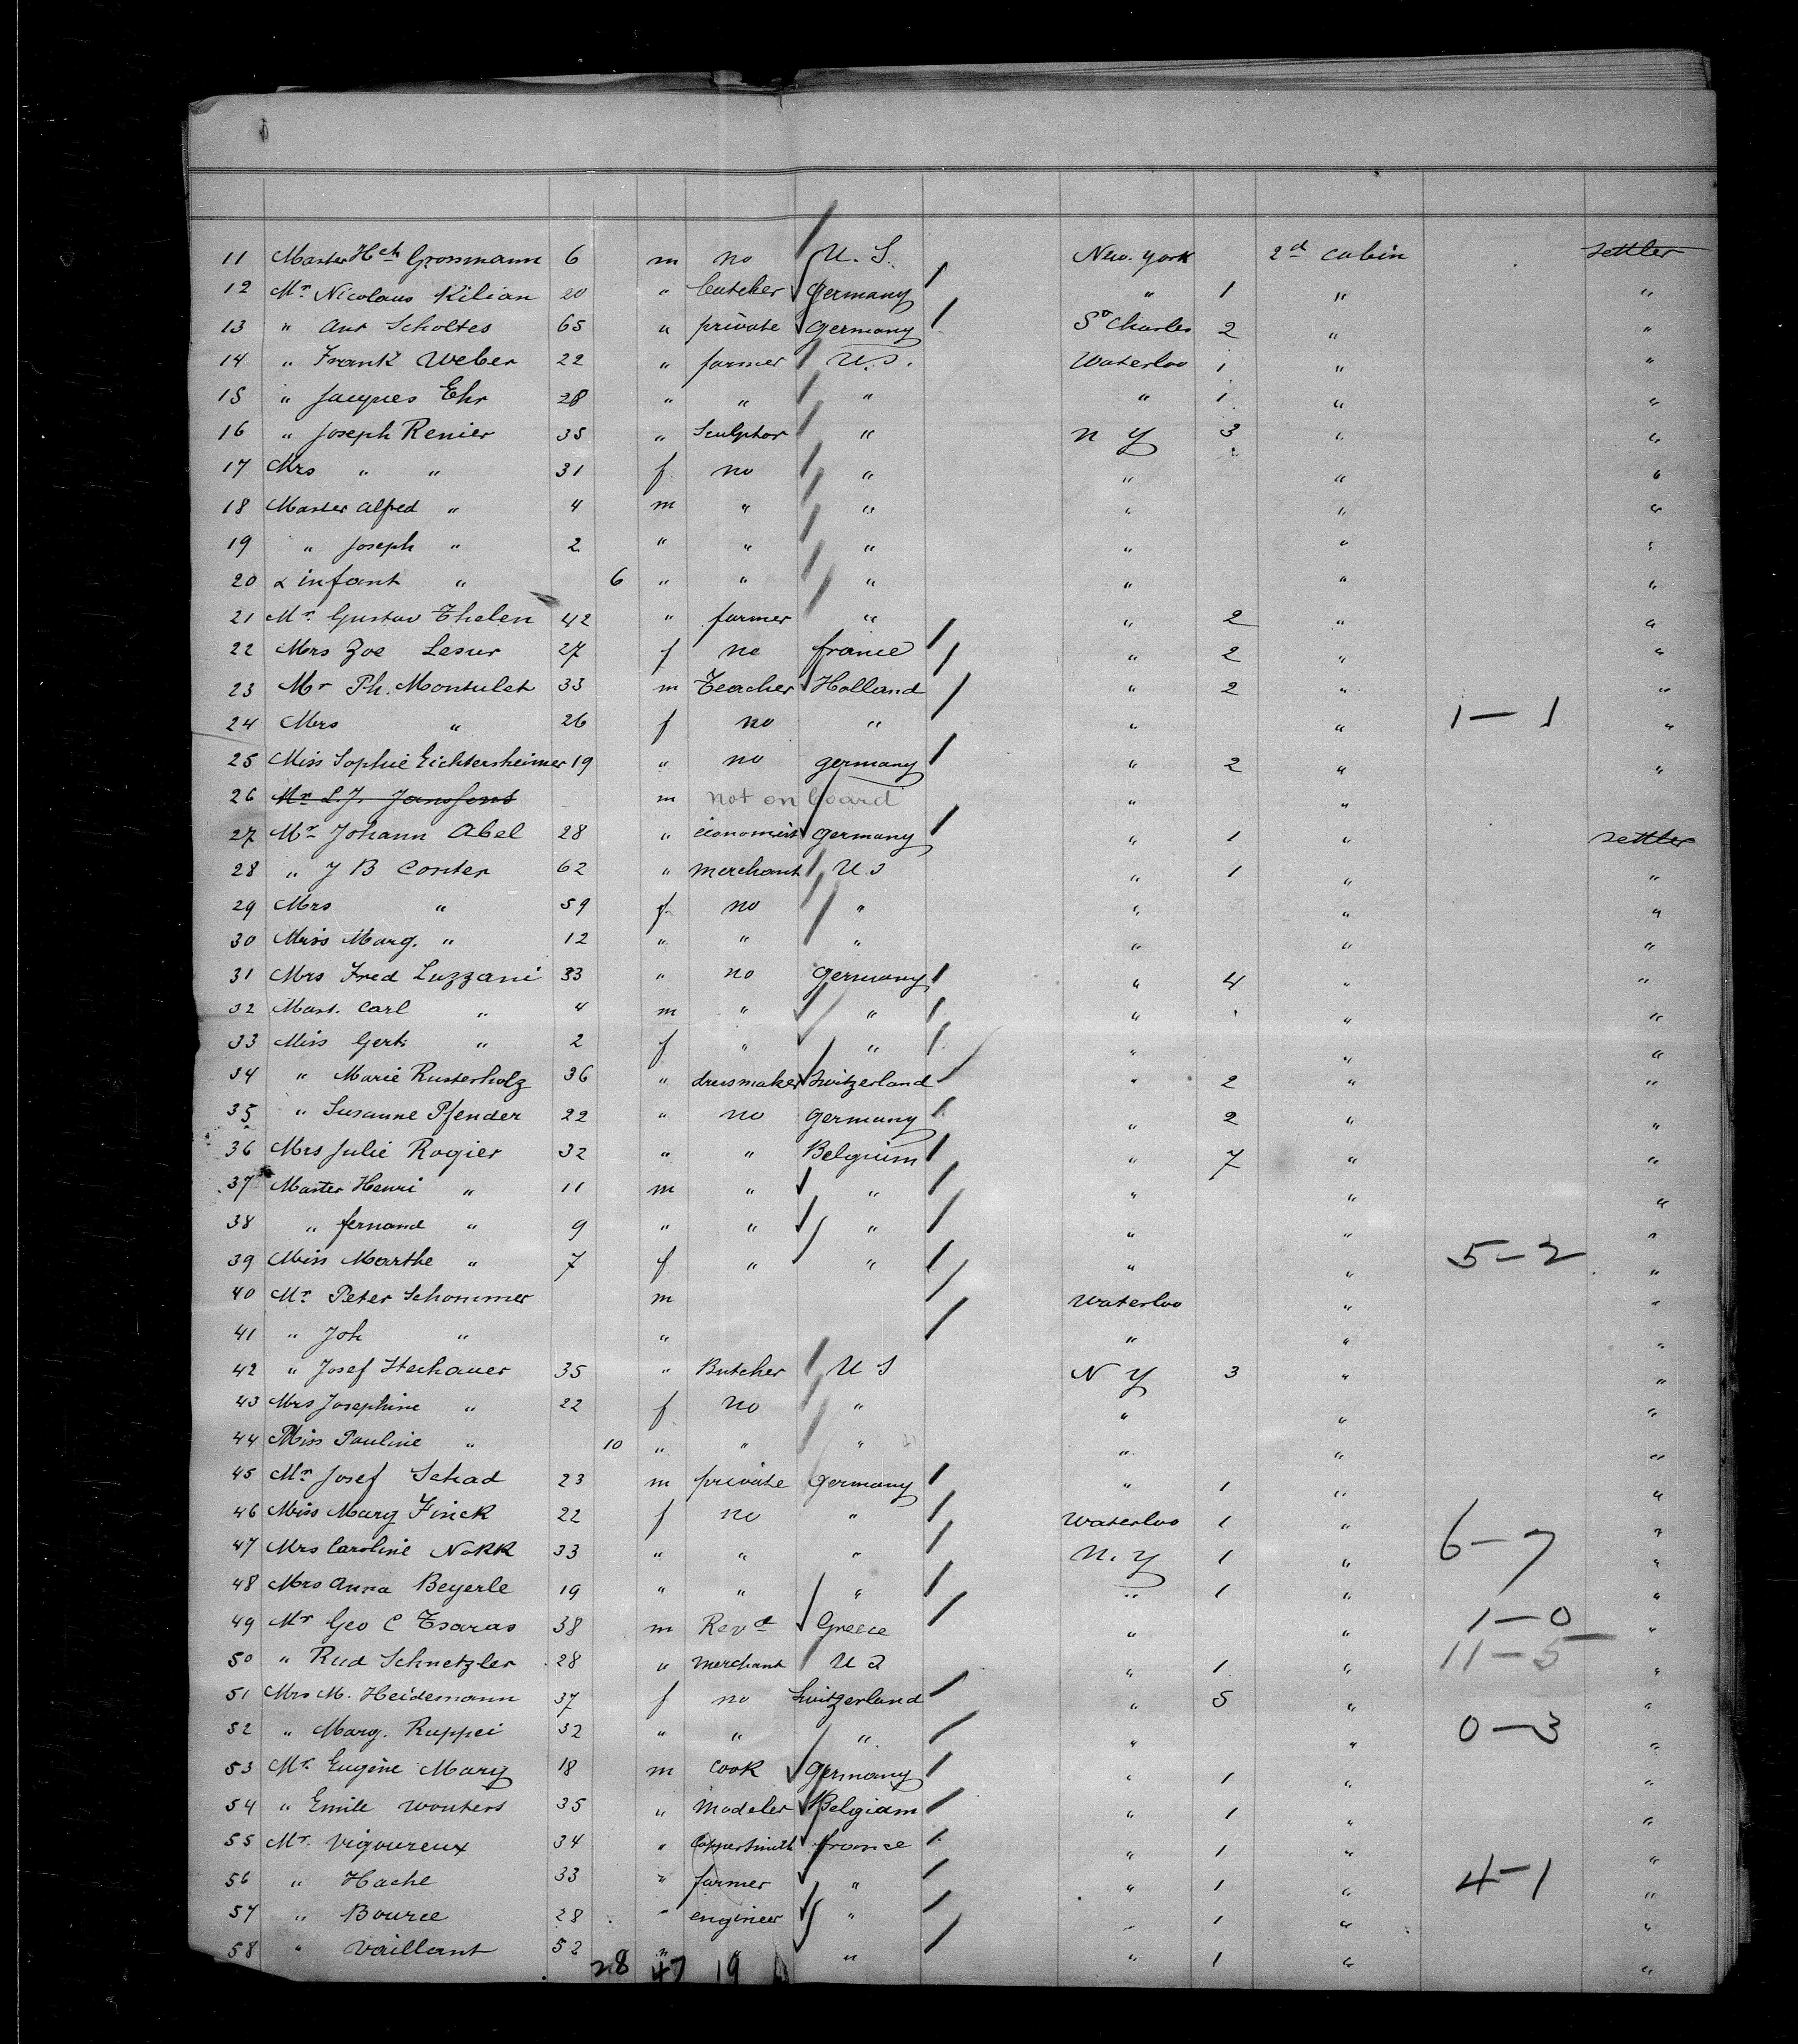 11 Master Hch Grossmann 6 m no U. S. New. York 2d cabin settler
12 Mr. Nicolaus Kilian 20 " butcher Germany " 1 " "
13 " Ant Scholtes 65 " private Germany St Charles 2 " "
14 " Frank Weber 22 " farmer U.S. Waterloo 1 " "
15 " Jacques Ehr 28 " " " " 1 " "
16 " Joseph Renier 35 " Sculptor " N Y 3 " "
17 Mrs " " 31 f no " " " "
18 Master Alfred " 4 m " " " " "
19 " Joseph " 2 " " " " " "
20 & infant " 6 " " " " " "
21 Mr. Gustav Thelen 42 " farmer " " 2 " "
22 Mrs Zoe Lesur 27 f no france " 2 " "
23 Mr Ph. Montulet 33 m Teacher Holland " 2 " "
24 Mrs " 26 f no " " " 1—1 "
25 Miss Sophie Eichtersheimer 19 " no germany " 2 " "
26 Mr L.J. Janssens m not on board " "
27 Mr. Johann Abel 28 " economist germany " 1 " settler
28 " J B Conter 62 " merchant U.S " 1 " "
29 Mrs " 59 f. no " " " "
30 Miss Marg. " 12 " " " " " "
31 Mrs Fred Luzzani 33 " no Germany " 4 " "
32 Mast. Carl " 4 m " " " " "
33 Miss Gert. " 2 f " " " " "
34 " Marie Rusterholz 36 " dressmaker Switzerland " 2 " "
35 " Susanne Pfender 22 " no Germany " 2 " "
36 Mrs Julie Rogier 32 " " Belgium " 7 " "
37 Master Henri " 11 m " " " " "
38 " fernand " 9 " " " " " "
39 Miss Marthe " 7 f " " " " 5—2 "
40 Mr. Peter Schommer m Waterloo " "
41 " Joh " " " " "
42 " Josef Hechauer 35 " Butcher U S N Y 3 " "
43 Mrs Josephine " 22 f no " " " "
44 Miss Pauline " 10 " " " " " "
45 Mr. Josef Schad 23 m private Germany " 1 " "
46 Miss Marg Finck 22 f no " Waterloo 1 " "
47 Mrs Caroline Nokk 33 " " " N. Y 1 " 6—7 "
48 Mrs Anna Beyerle 19 " " " " 1 " "
49 Mr Geo C Tsaras 38 m Revd Greece " " 1—0 "
50 " Rud Schnetzler 28 " merchant U S " 1 " 11—5 "
51 Mrs M. Heidemann 37 f no Switzerland " 5 " "
52 " Marg. Ruppei 32 " " " " " 0—3 "
53 Mr. Eugène Mary 18 m cook Germany " 1 " "
54 " Emile Wouters 35 " Modeler Belgiam " 1 " "
55 Mr. Vigoureux 34 " Coppersmith france " 1 " "
56 " Hache 33 " farmer " " 1 " 4—1 "
57 " Bource 28 " engineer " " 1 " "
58 " Vaillant 52 " " " " 1 " "
28 47 19